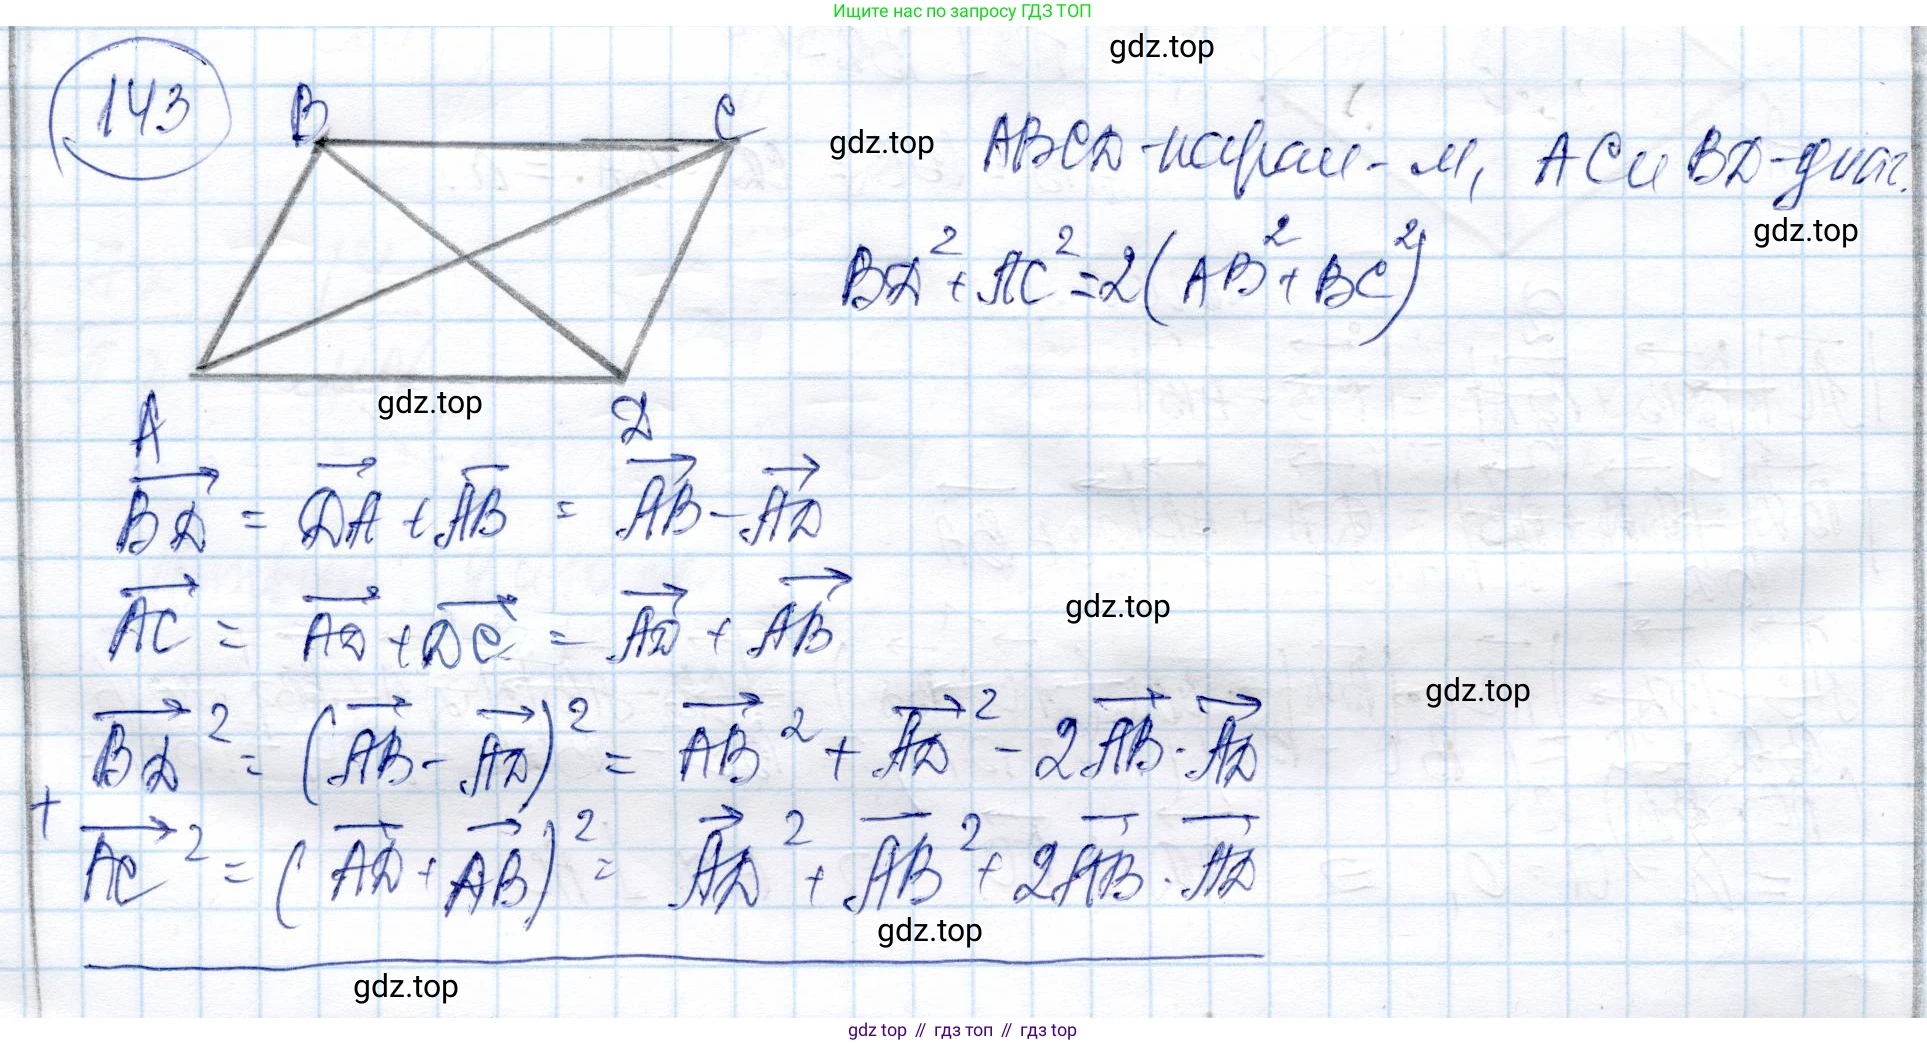 Ищите нас по запросу ГДЗ ТОП
gdz.top
143
B C
gdz.top
ABCD - парал-м, AC и BD - диаг.
gdz.top
BD² + AC² = 2(AB² + BC²)
gdz.top
A D
BD = DA + AB = AB - AD
AC = AD + DC = AD + AB
gdz.top
gdz.top
BD² = (AB - AD)² = AB² + AD² - 2AB · AD
+
AC² = (AD + AB)² = AD² + AB² + 2AB · AD
gdz.top
gdz.top
gdz top // гдз топ // гдз top